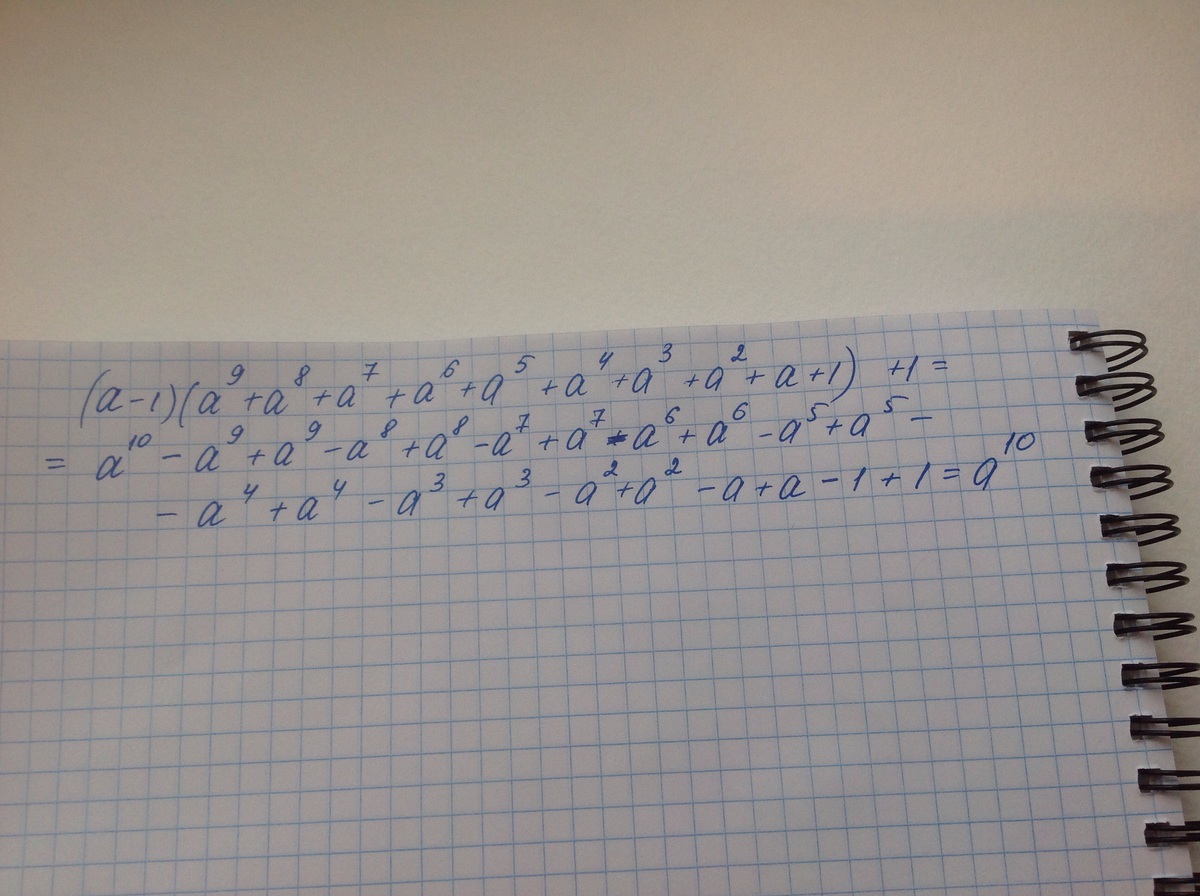 (a-1)(a⁹+a⁸+a⁷+a⁶+a⁵+a⁴+a³+a²+a+1) +1=
= a¹⁰-a⁹+a⁹-a⁸+a⁸-a⁷+a⁷-a⁶+a⁶-a⁵+a⁵-
-a⁴+a⁴-a³+a³-a²+a²-a+a-1+1=a¹⁰